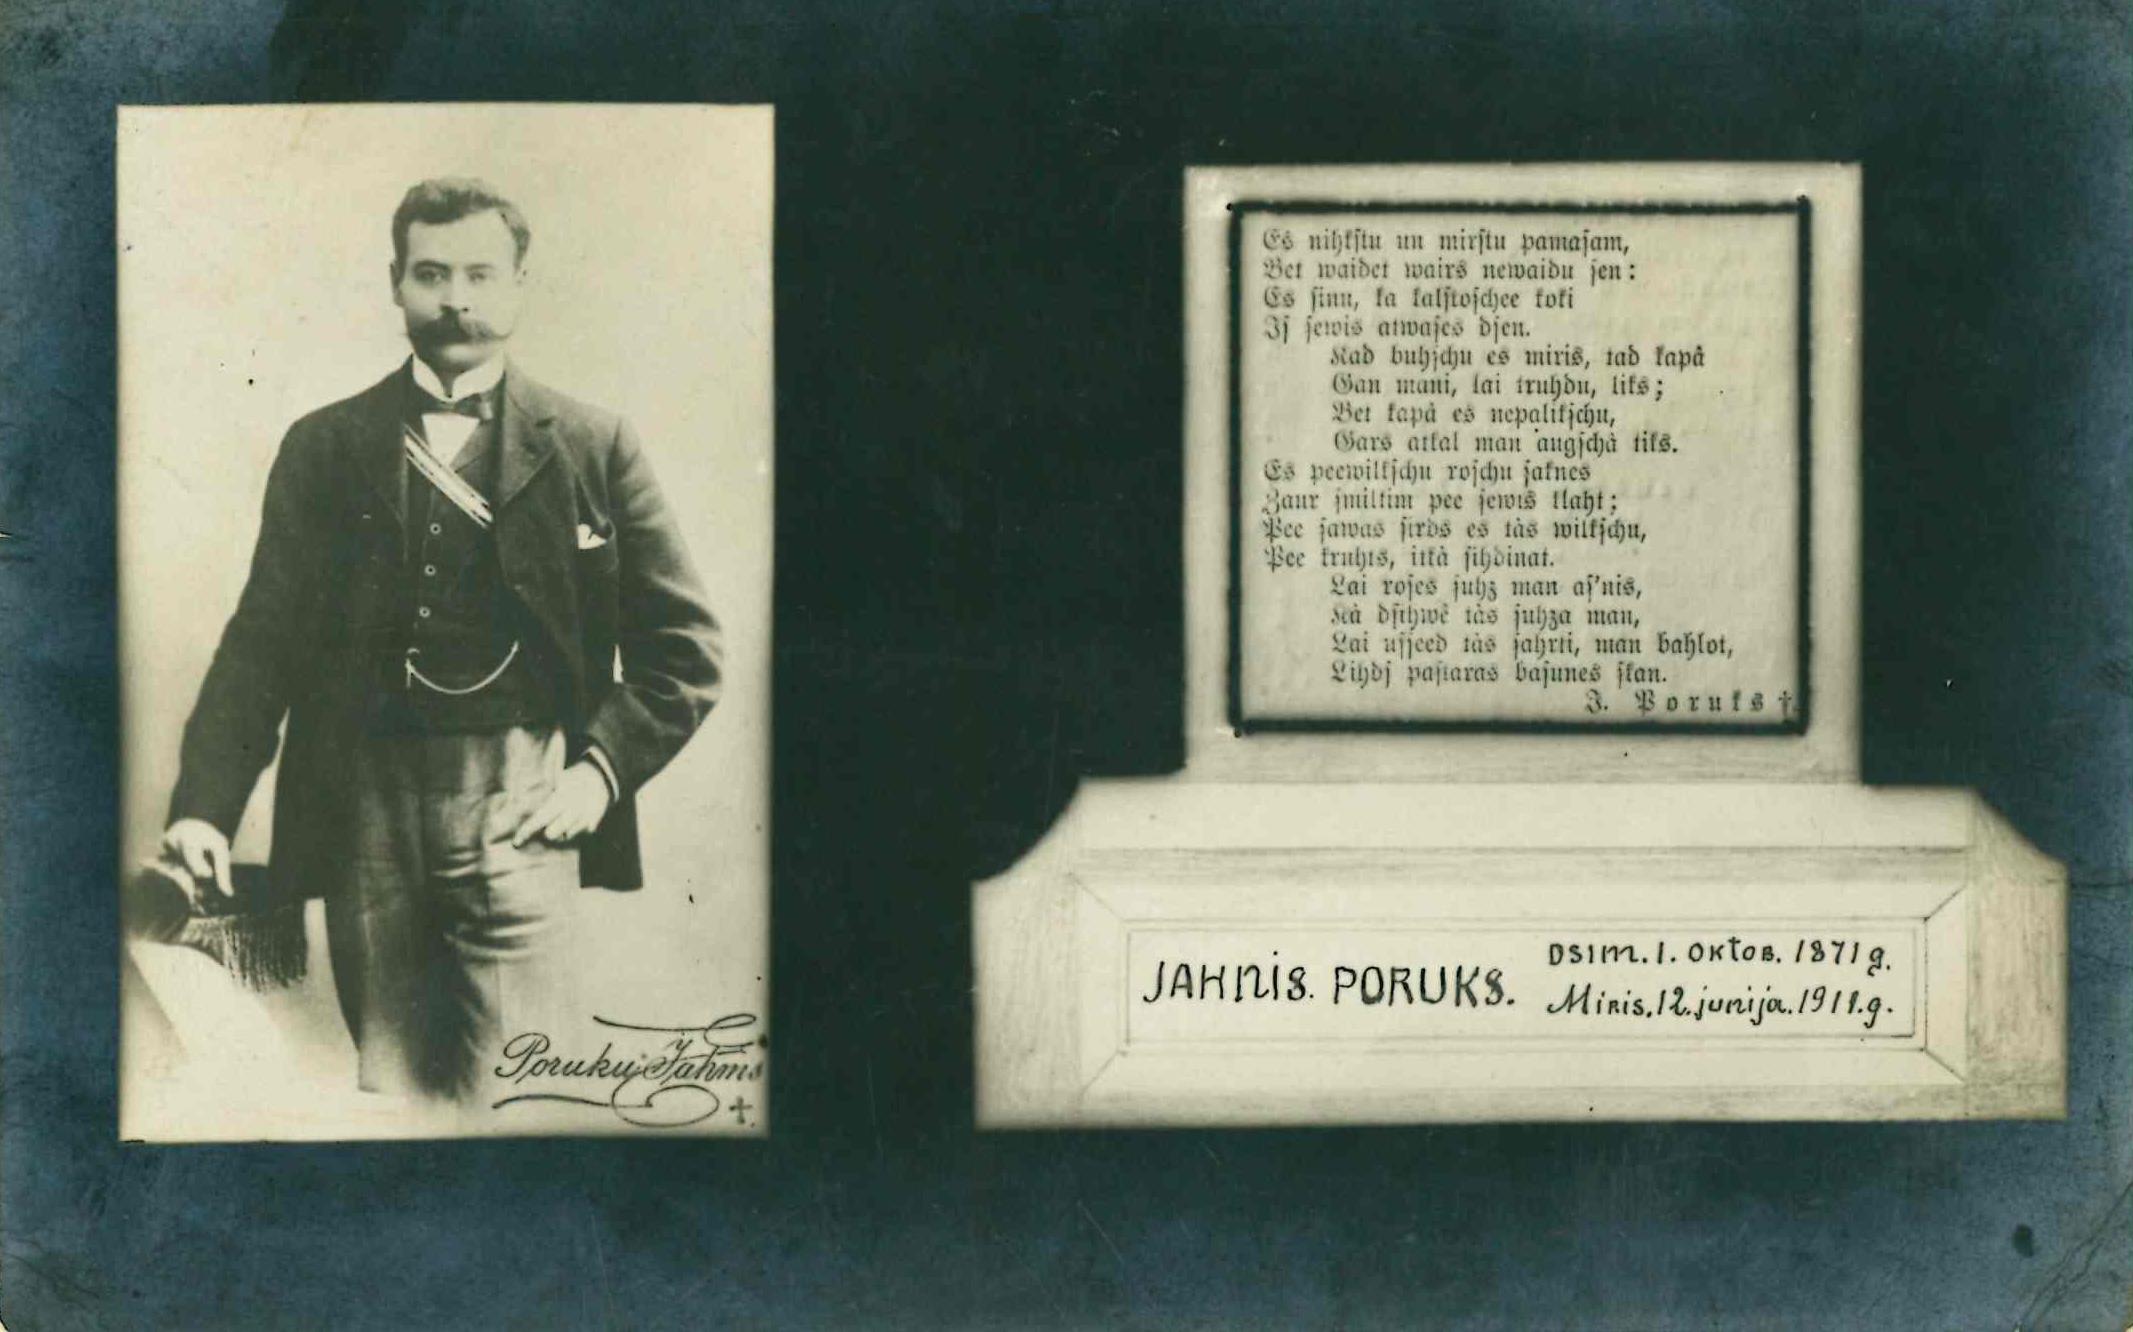 Poruku Jahnis
†.
Es nihkstu un mirstu pamasam,
Bet waidet wairs newaidu sen:
Es sinu, ka kalstoschee koki
Is sewis atwases dsen.
Kad buhschu es miris, tad kapâ
Gan mani, lai truhdu, liks;
Bet kapâ es nepalikschu,
Gars atkal man augschâ tiks.
Es peewilkschu roschu saknes
Zaur smiltim pee sewis klaht;
Pee sawas sirds es tâs wilkschu,
Pee kruhts, itkâ sihdinat.
Lai roses suhz man as'nis,
Kâ dsihwê tâs suhza man,
Lai usseed tâs sahrti, man bahlot,
Lihds pastaras basunes skan.
J. Poruks †.
JAHNIS. PORUKS.
DSIM. 1. OKTOB. 1871 g.
Miris. 12. junija. 1911. g.